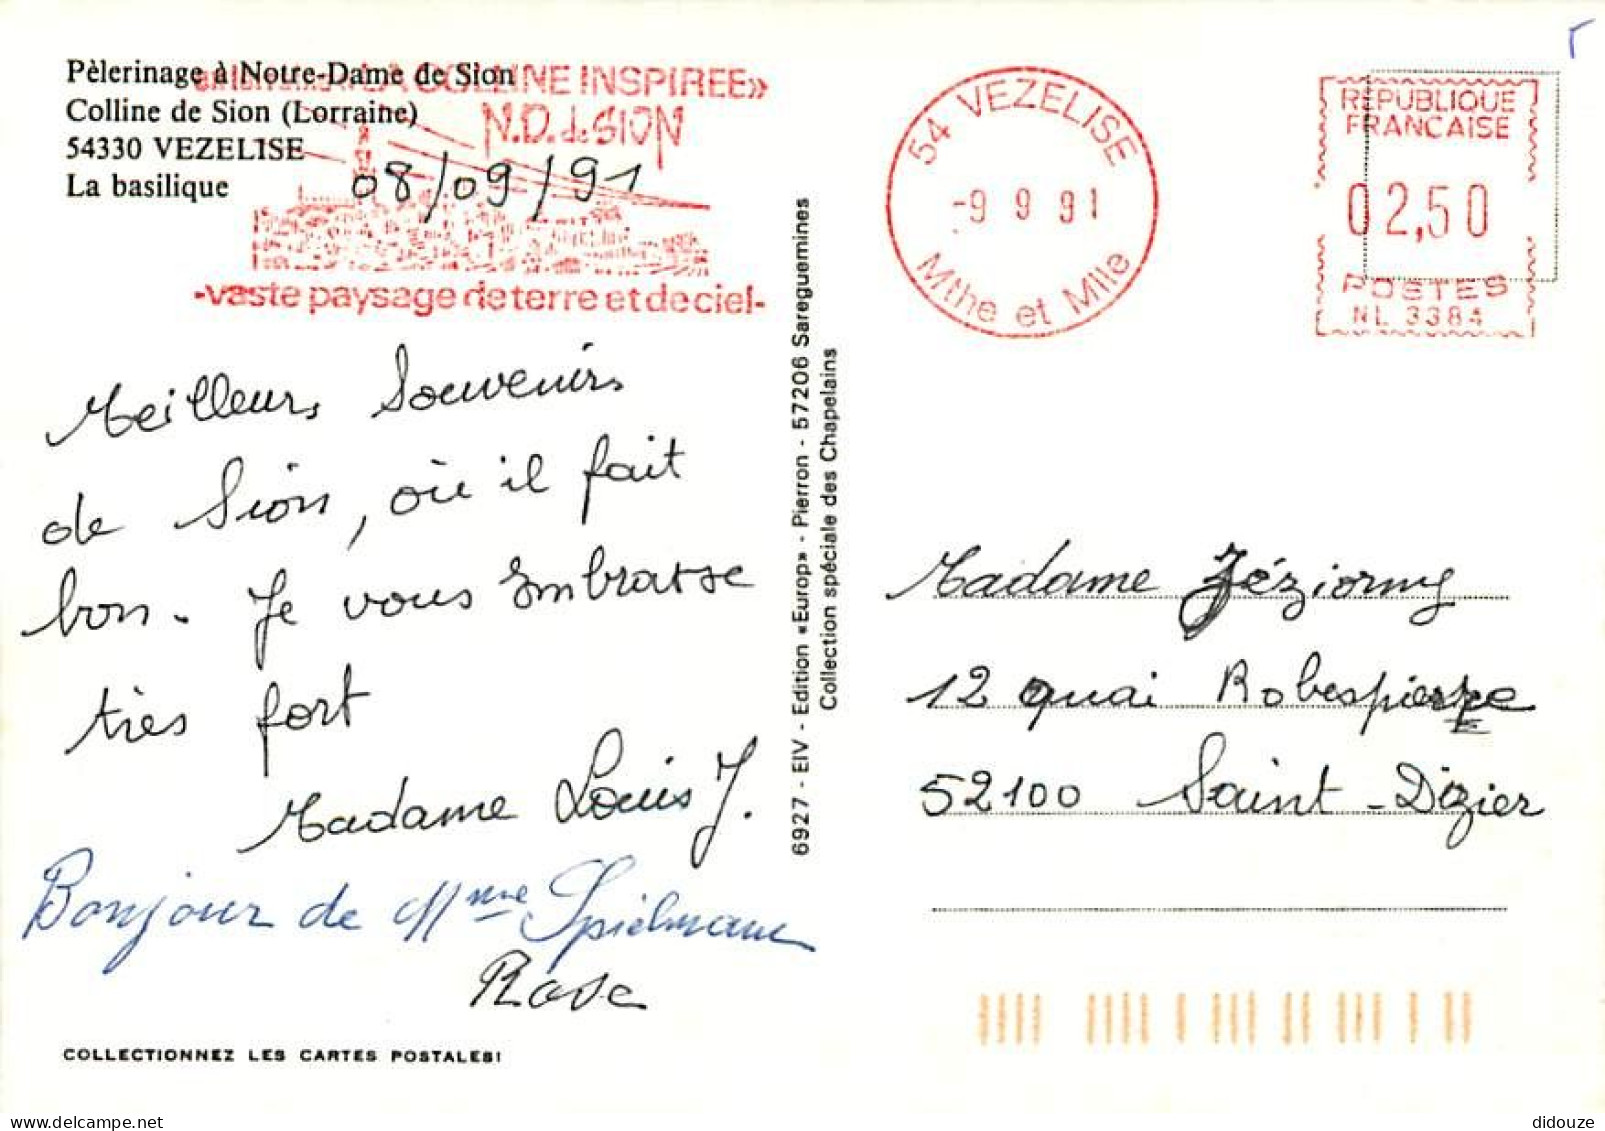 Pèlerinage à Notre-Dame de Sion
Colline de Sion (Lorraine)
54330 VEZELISE
La basilique
COLLINE INSPIREE»
N.D. de SION
08/09/91
-vaste paysage de terre et de ciel-
54 VEZELISE
-9 9 91
Mthe et Mlle
REPUBLIQUE
FRANCAISE
02,50
POSTES
NL 3384
Meilleurs Souvenirs
de Sion, où il fait
bon. Je vous Embrasse
très fort
Madame Louis J.
Bonjour de Mme Spielmann
Rose
COLLECTIONNEZ LES CARTES POSTALES!
6927 - EIV - Edition «Europ» - Pierron - 57206 Sareguemines
Collection spéciale des Chapelains
Madame Jéziorny
12 quai Robespierre
52100 Saint-Dizier
didouze